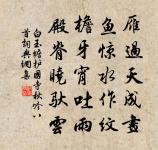 雁過天成畫
魚惊水作紋
檐牙宵吐雨
殿脊曉馱雲
白玉蟾护國寺秋吟八
首詞典網集